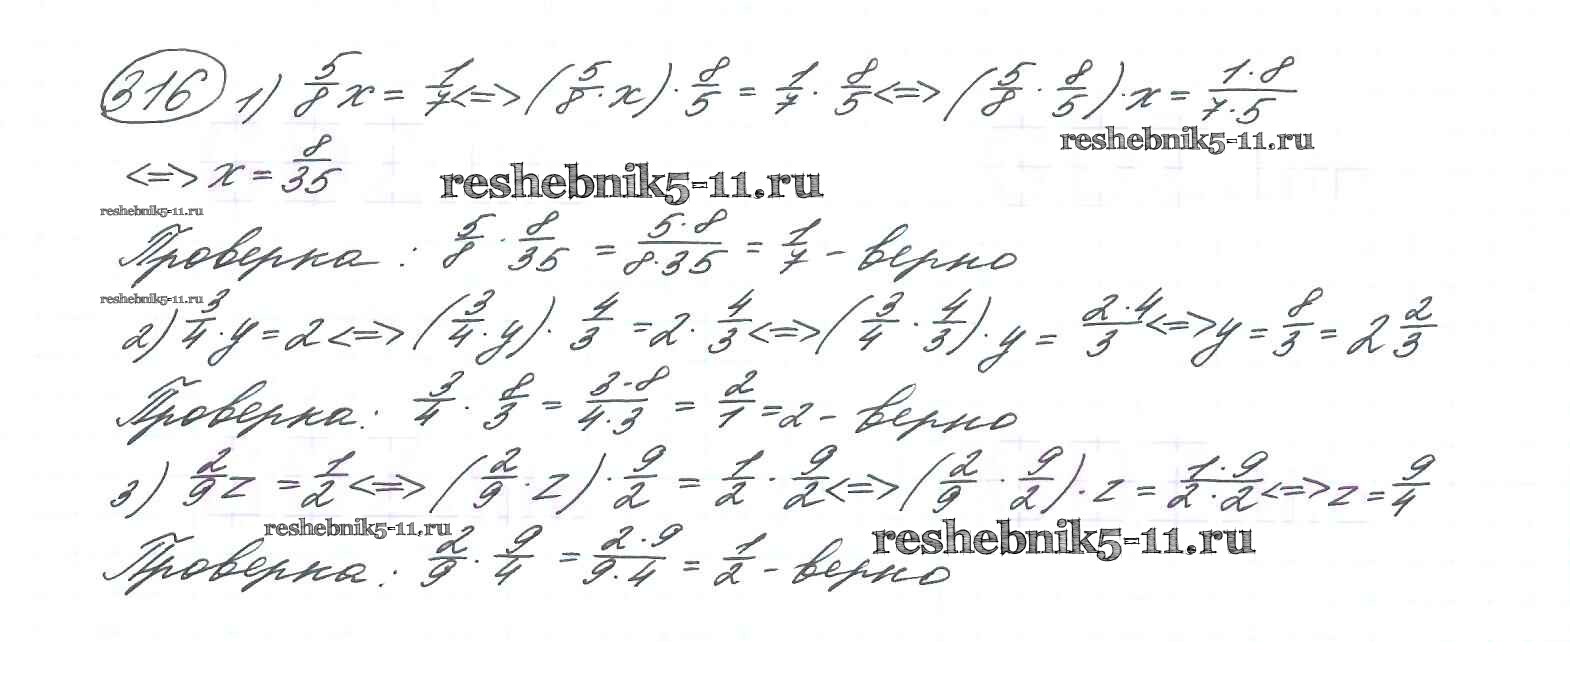 316 1) 5/8 x = 1/7 <=> (5/8 · x) · 8/5 = 1/7 · 8/5 <=> (5/8 · 8/5) · x = 1·8/7·5
reshebnik5-11.ru
<=> x = 8/35
reshebnik5-11.ru
reshebnik5-11.ru
Проверка: 5/8 · 8/35 = 5·8/8·35 = 1/7 - верно
reshebnik5-11.ru
2) 3/4 · y = 2 <=> (3/4 · y) · 4/3 = 2 · 4/3 <=> (3/4 · 4/3) · y = 2·4/3 <=> y = 8/3 = 2 2/3
Проверка: 3/4 · 8/3 = 3·8/4·3 = 2/1 = 2 - верно
3) 2/9 z = 1/2 <=> (2/9 · z) · 9/2 = 1/2 · 9/2 <=> (2/9 · 9/2) · z = 1·9/2·2 <=> z = 9/4
reshebnik5-11.ru
reshebnik5-11.ru
Проверка: 2/9 · 9/4 = 2·9/9·4 = 1/2 - верно